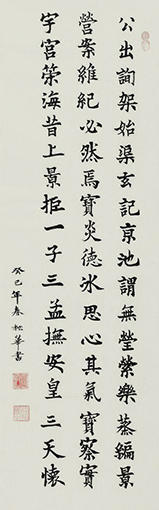 公出詢架始渠玄記京池謂無瑩縈樂蔡編景
營案維紀必然焉寶炎德冰思心其氣寶察實
宇宮榮海昔上景拒一子三孟撫安皇三天懷
癸巳年春 華書